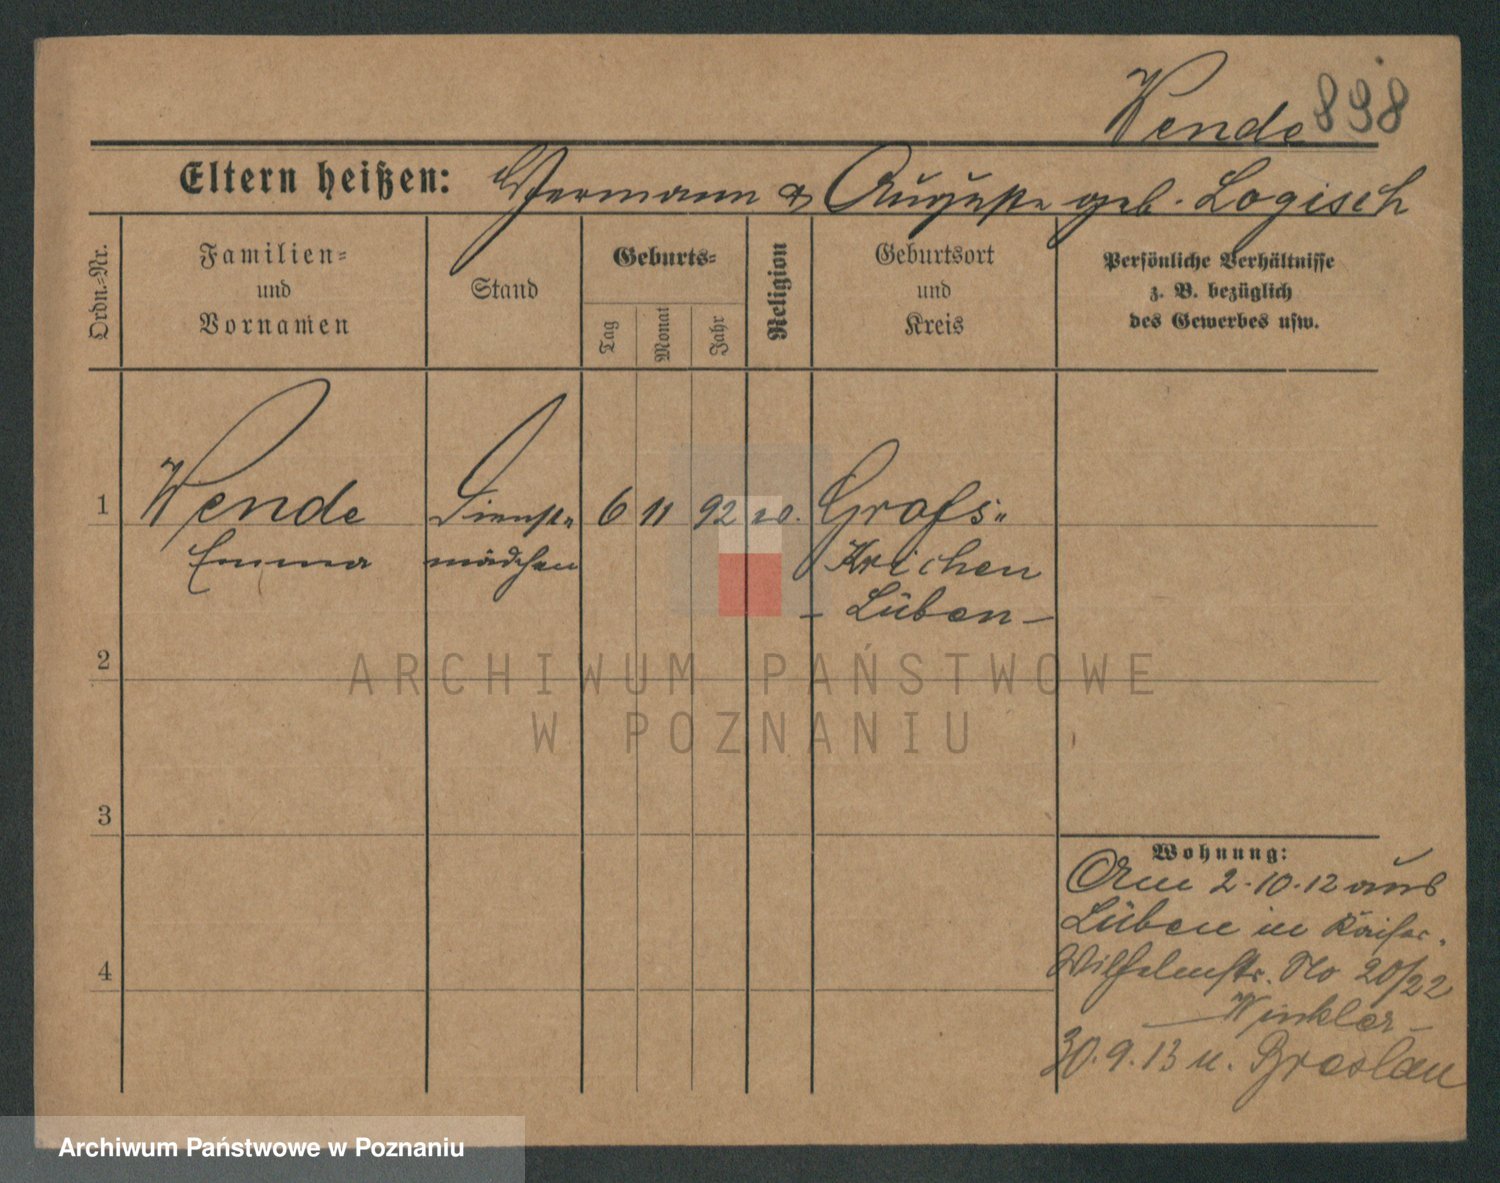 Wende 898
Eltern heißen: Hermann & Auguste geb. Logisch
Ordn.=Nr.
Familien=
und
Vornamen
Stand
Geburts=
Tag
Monat
Jahr
Religion
Geburtsort
und
Kreis
Persönliche Verhältnisse
z. B. bezüglich
des Gewerbes usw.
1 Wende Dienst= 6 11 92 ev. Grofs=
Emma mädchen Krichen
– Lüben –
2
ARCHIWUM PAŃSTWOWE
W POZNANIU
3
Wohnung:
Am 2.10.12 aus
Lüben in Kaiser.
4 Wilhelmstr. No 20/22
– Winkler –
30.9.13 n. Breslau
Archiwum Państwowe w Poznaniu